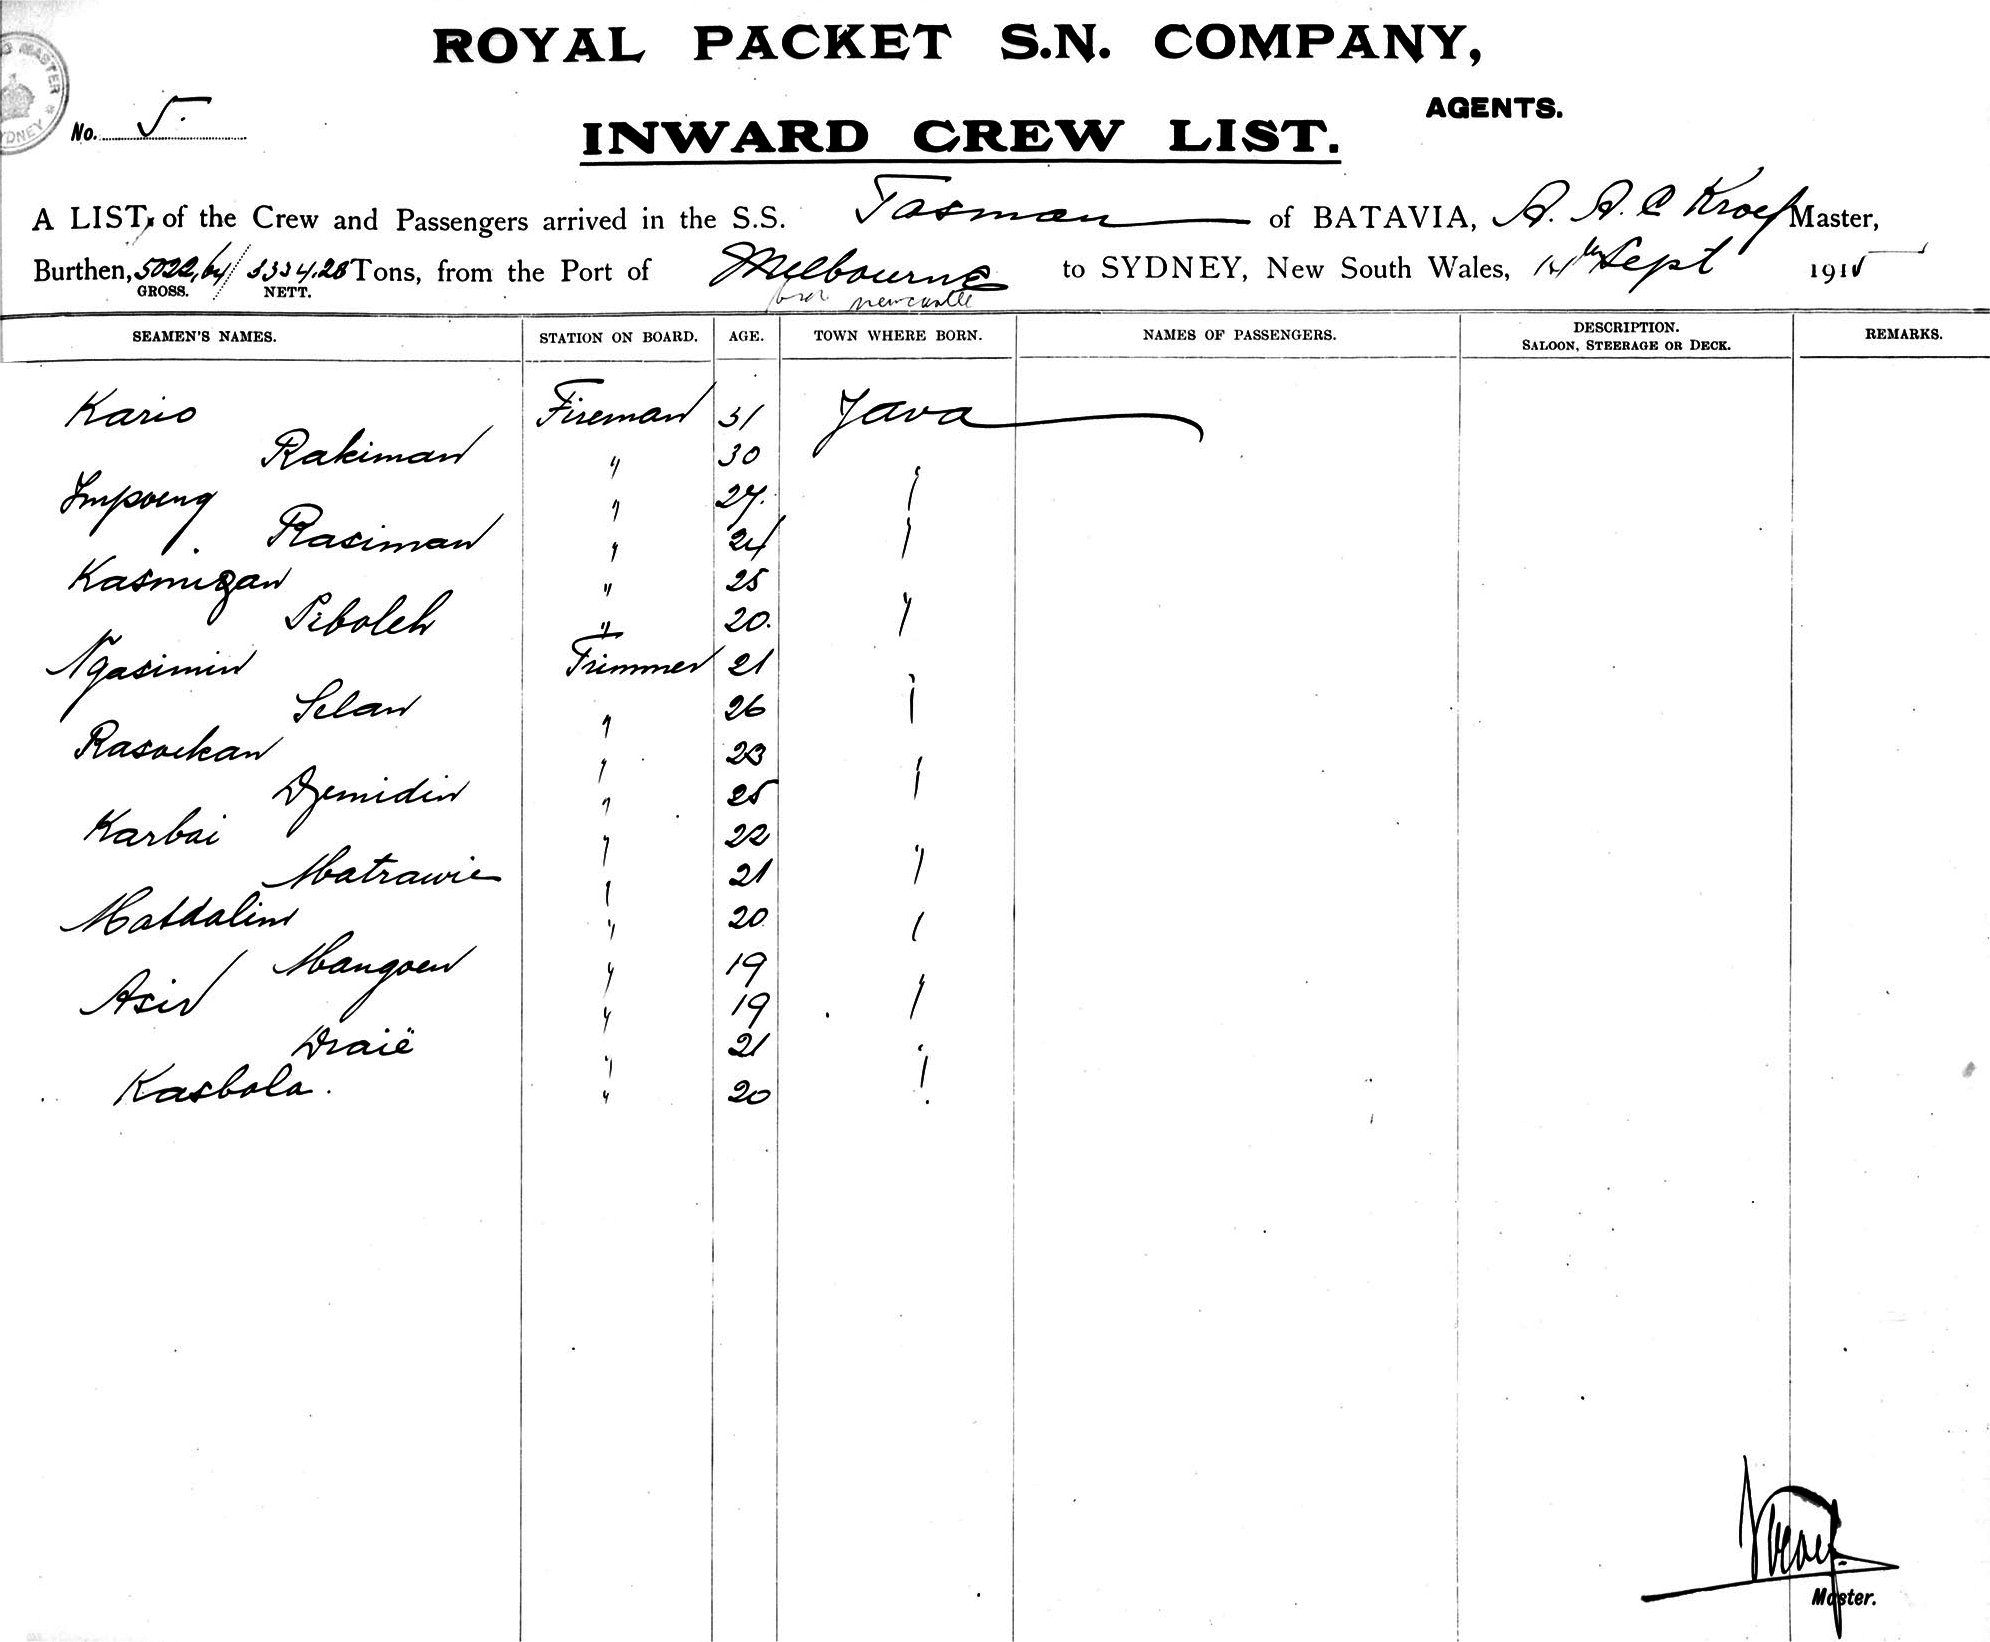 ROYAL PACKET S.N. COMPANY,
AGENTS.
MASTER
SYDNEY
No. 5.
INWARD CREW LIST.
A LIST of the Crew and Passengers arrived in the S.S. Tasman of BATAVIA, A. A. C Kroef Master,
Burthen, 5022,64 3334.28 Tons, from the Port of Melbourne to SYDNEY, New South Wales, 14th Sept 1915
GROSS. NETT. Newcastle
SEAMEN'S NAMES. STATION ON BOARD. AGE. TOWN WHERE BORN. NAMES OF PASSENGERS. DESCRIPTION. SALOON, STEERAGE OR DECK. REMARKS.
Kario Fireman 31 Java
Rakiman " 30
Impoeng " 27. "
Rasiman " 24 "
Kasmizan " 25
Piboleh " 20. "
Ngasimin Trimmer 21
Selan " 26 "
Rasoekan " 23
Djemidin " 25 "
Karbai " 22
Matrawie " 21 "
Matdalim " 20 "
Mangoen " 19
Asir " 19 "
Draië " 21 "
Kasbola. " 20 "
Kroef
Master.